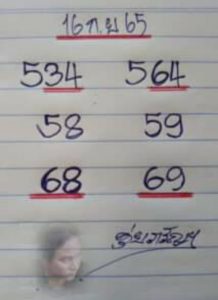 16 ก.ย 65
534 564
58 59
68 69